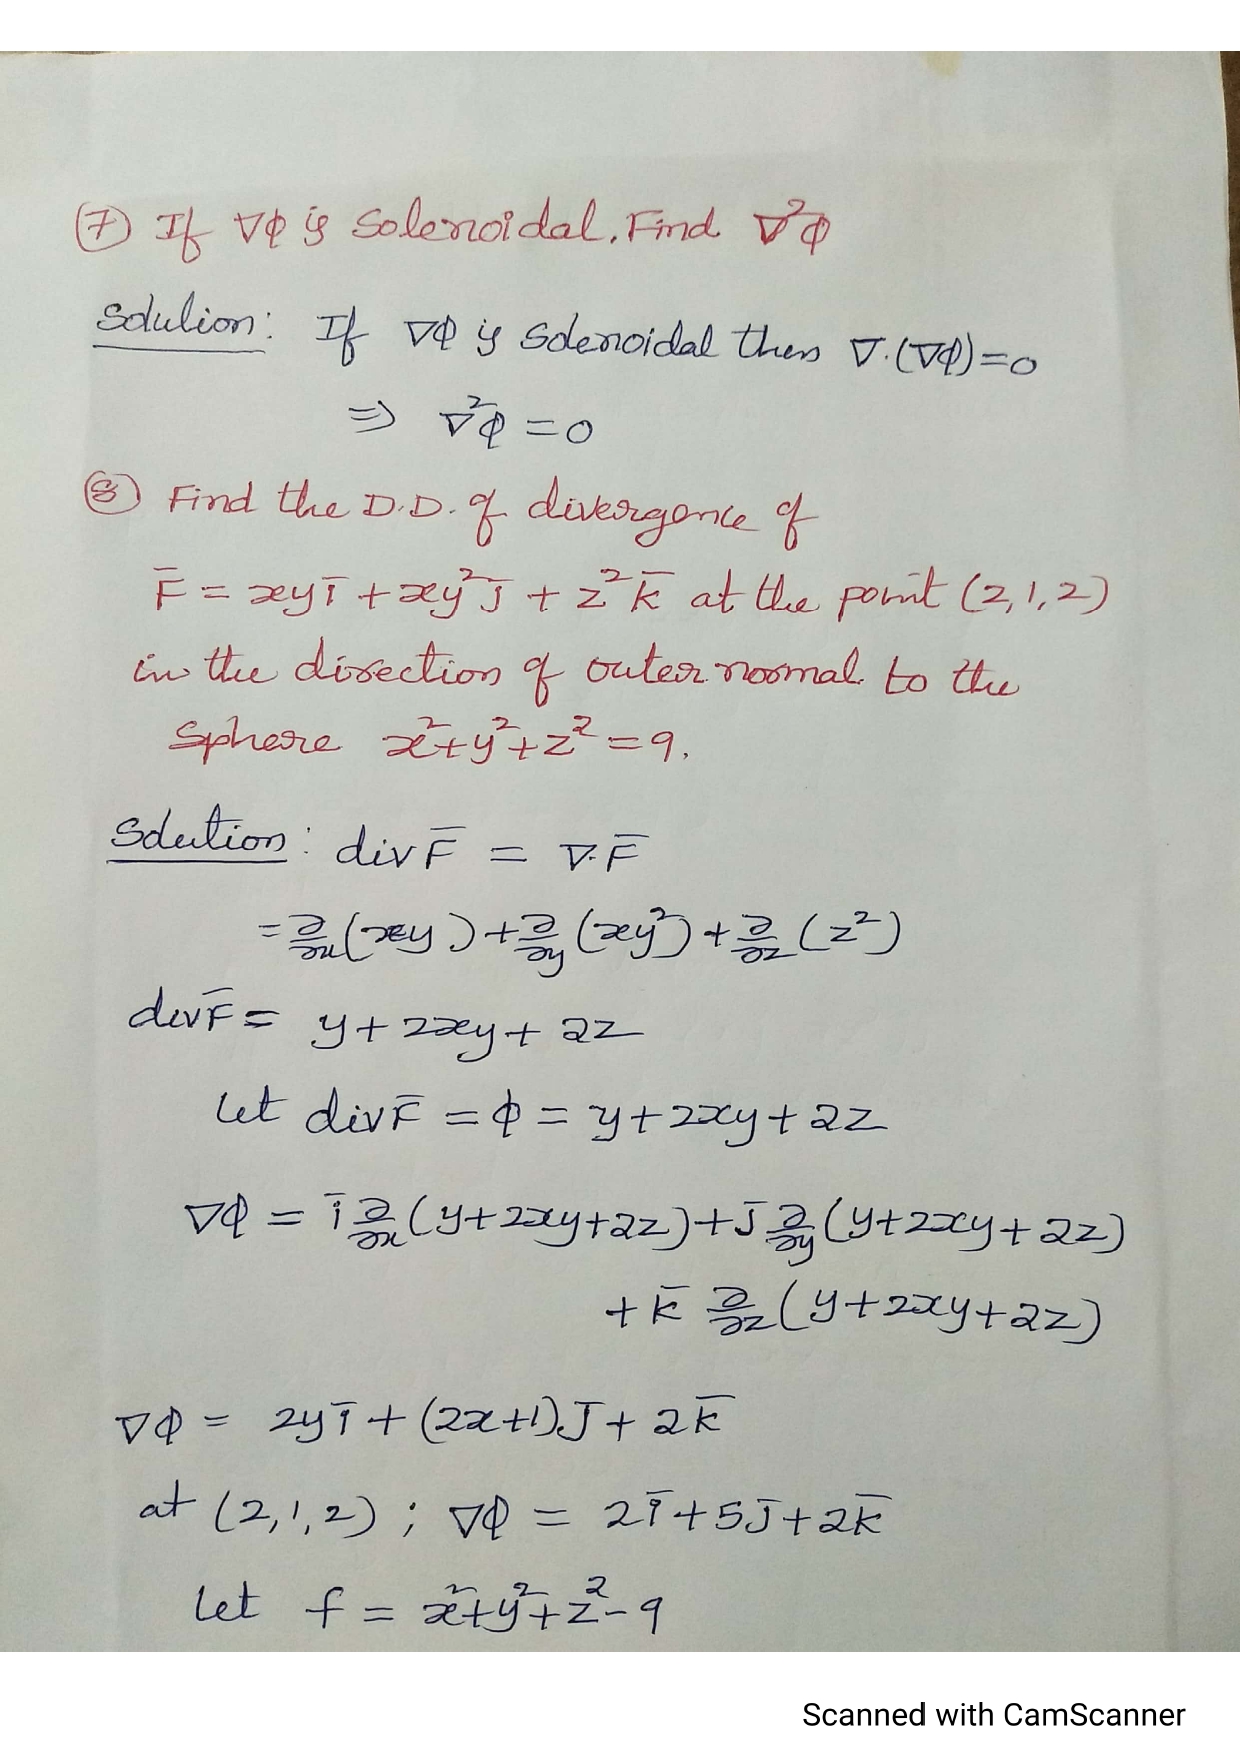 (7) If ∇φ is solenoidal. Find ∇²φ
Solution: If ∇φ is solenoidal then ∇.(∇φ)=0
⇒ ∇²φ = 0
(8) Find the D.D. of divergence of
F̄ = xy ī + xy² j̄ + z² k̄ at the point (2,1,2)
in the direction of outer normal to the
sphere x²+y²+z² = 9.
Solution: div F̄ = ∇.F̄
= ∂/∂x (xy) + ∂/∂y (xy²) + ∂/∂z (z²)
div F̄ = y + 2xy + 2z
Let div F̄ = φ = y + 2xy + 2z
∇φ = ī ∂/∂x (y+2xy+2z) + j̄ ∂/∂y (y+2xy+2z)
+ k̄ ∂/∂z (y+2xy+2z)
∇φ = 2y ī + (2x+1) j̄ + 2 k̄
at (2,1,2) ; ∇φ = 2 ī + 5 j̄ + 2 k̄
Let f = x²+y²+z²-9
Scanned with CamScanner